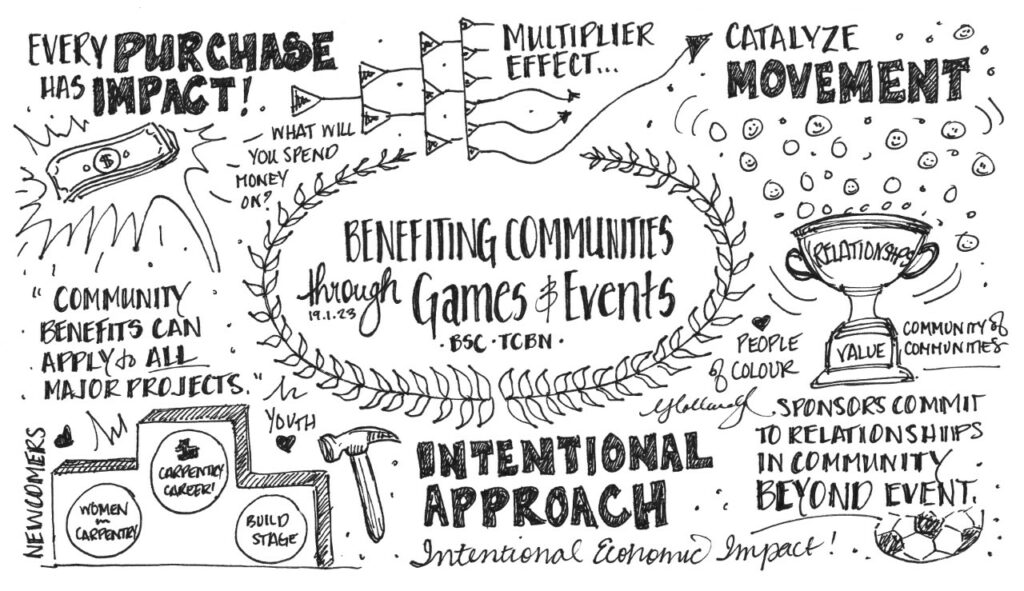 EVERY PURCHASE
HAS IMPACT!
$
WHAT WILL
YOU SPEND
MONEY
ON?
MULTIPLIER
EFFECT...
CATALYZE
MOVEMENT
BENEFITING COMMUNITIES
through Games & Events
19.1.23
· BSC · TCBN ·
"COMMUNITY
BENEFITS CAN
APPLY to ALL
MAJOR PROJECTS."
RELATIONSHIPS
VALUE
COMMUNITY of
COMMUNITIES
PEOPLE
of COLOUR
NEWCOMERS
YOUTH
WOMEN
in
CARPENTRY
CARPENTRY
CAREER!
BUILD
STAGE
INTENTIONAL
APPROACH
Intentional Economic Impact!
SPONSORS COMMIT
TO RELATIONSHIPS
IN COMMUNITY
BEYOND EVENT.